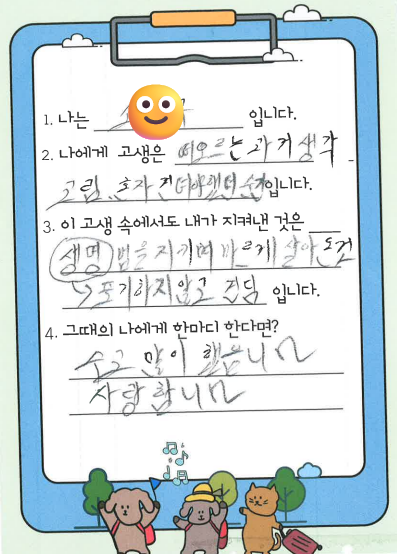 1. 나는 입니다.
2. 나에게 고생은 떠오르는 과거생각
고립, 혼자 견뎌야했던 순간입니다.
3. 이 고생 속에서도 내가 지켜낸 것은
생명 법을 지키며 바르게 살아온것
↳ 포기하지않고 견딤 입니다.
4. 그때의 나에게 한마디 한다면?
수고 많이 했습니다
사랑합니다